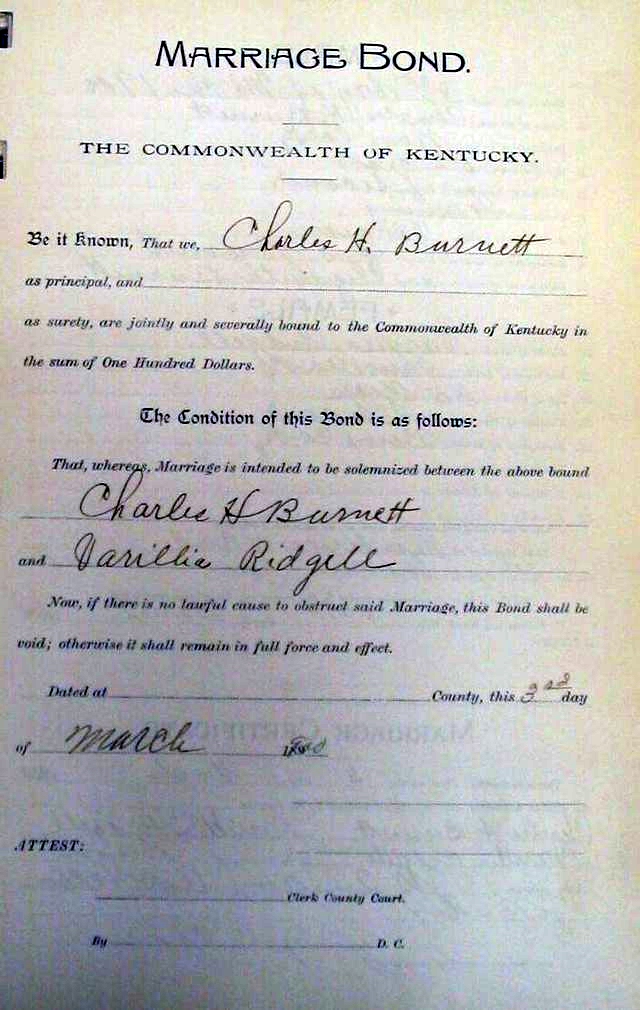 MARRIAGE BOND.
THE COMMONWEALTH OF KENTUCKY.
Be it Known, That we, Charles H. Burnett
as principal, and
as surety, are jointly and severally bound to the Commonwealth of Kentucky in
the sum of One Hundred Dollars.
The Condition of this Bond is as follows:
That, whereas, Marriage is intended to be solemnized between the above bound
Charles H Burnett
and Varillia Ridgell
Now, if there is no lawful cause to obstruct said Marriage, this Bond shall be
void; otherwise it shall remain in full force and effect.
Dated at County, this 3rd day
of March
ATTEST:
Clerk County Court.
By D. C.